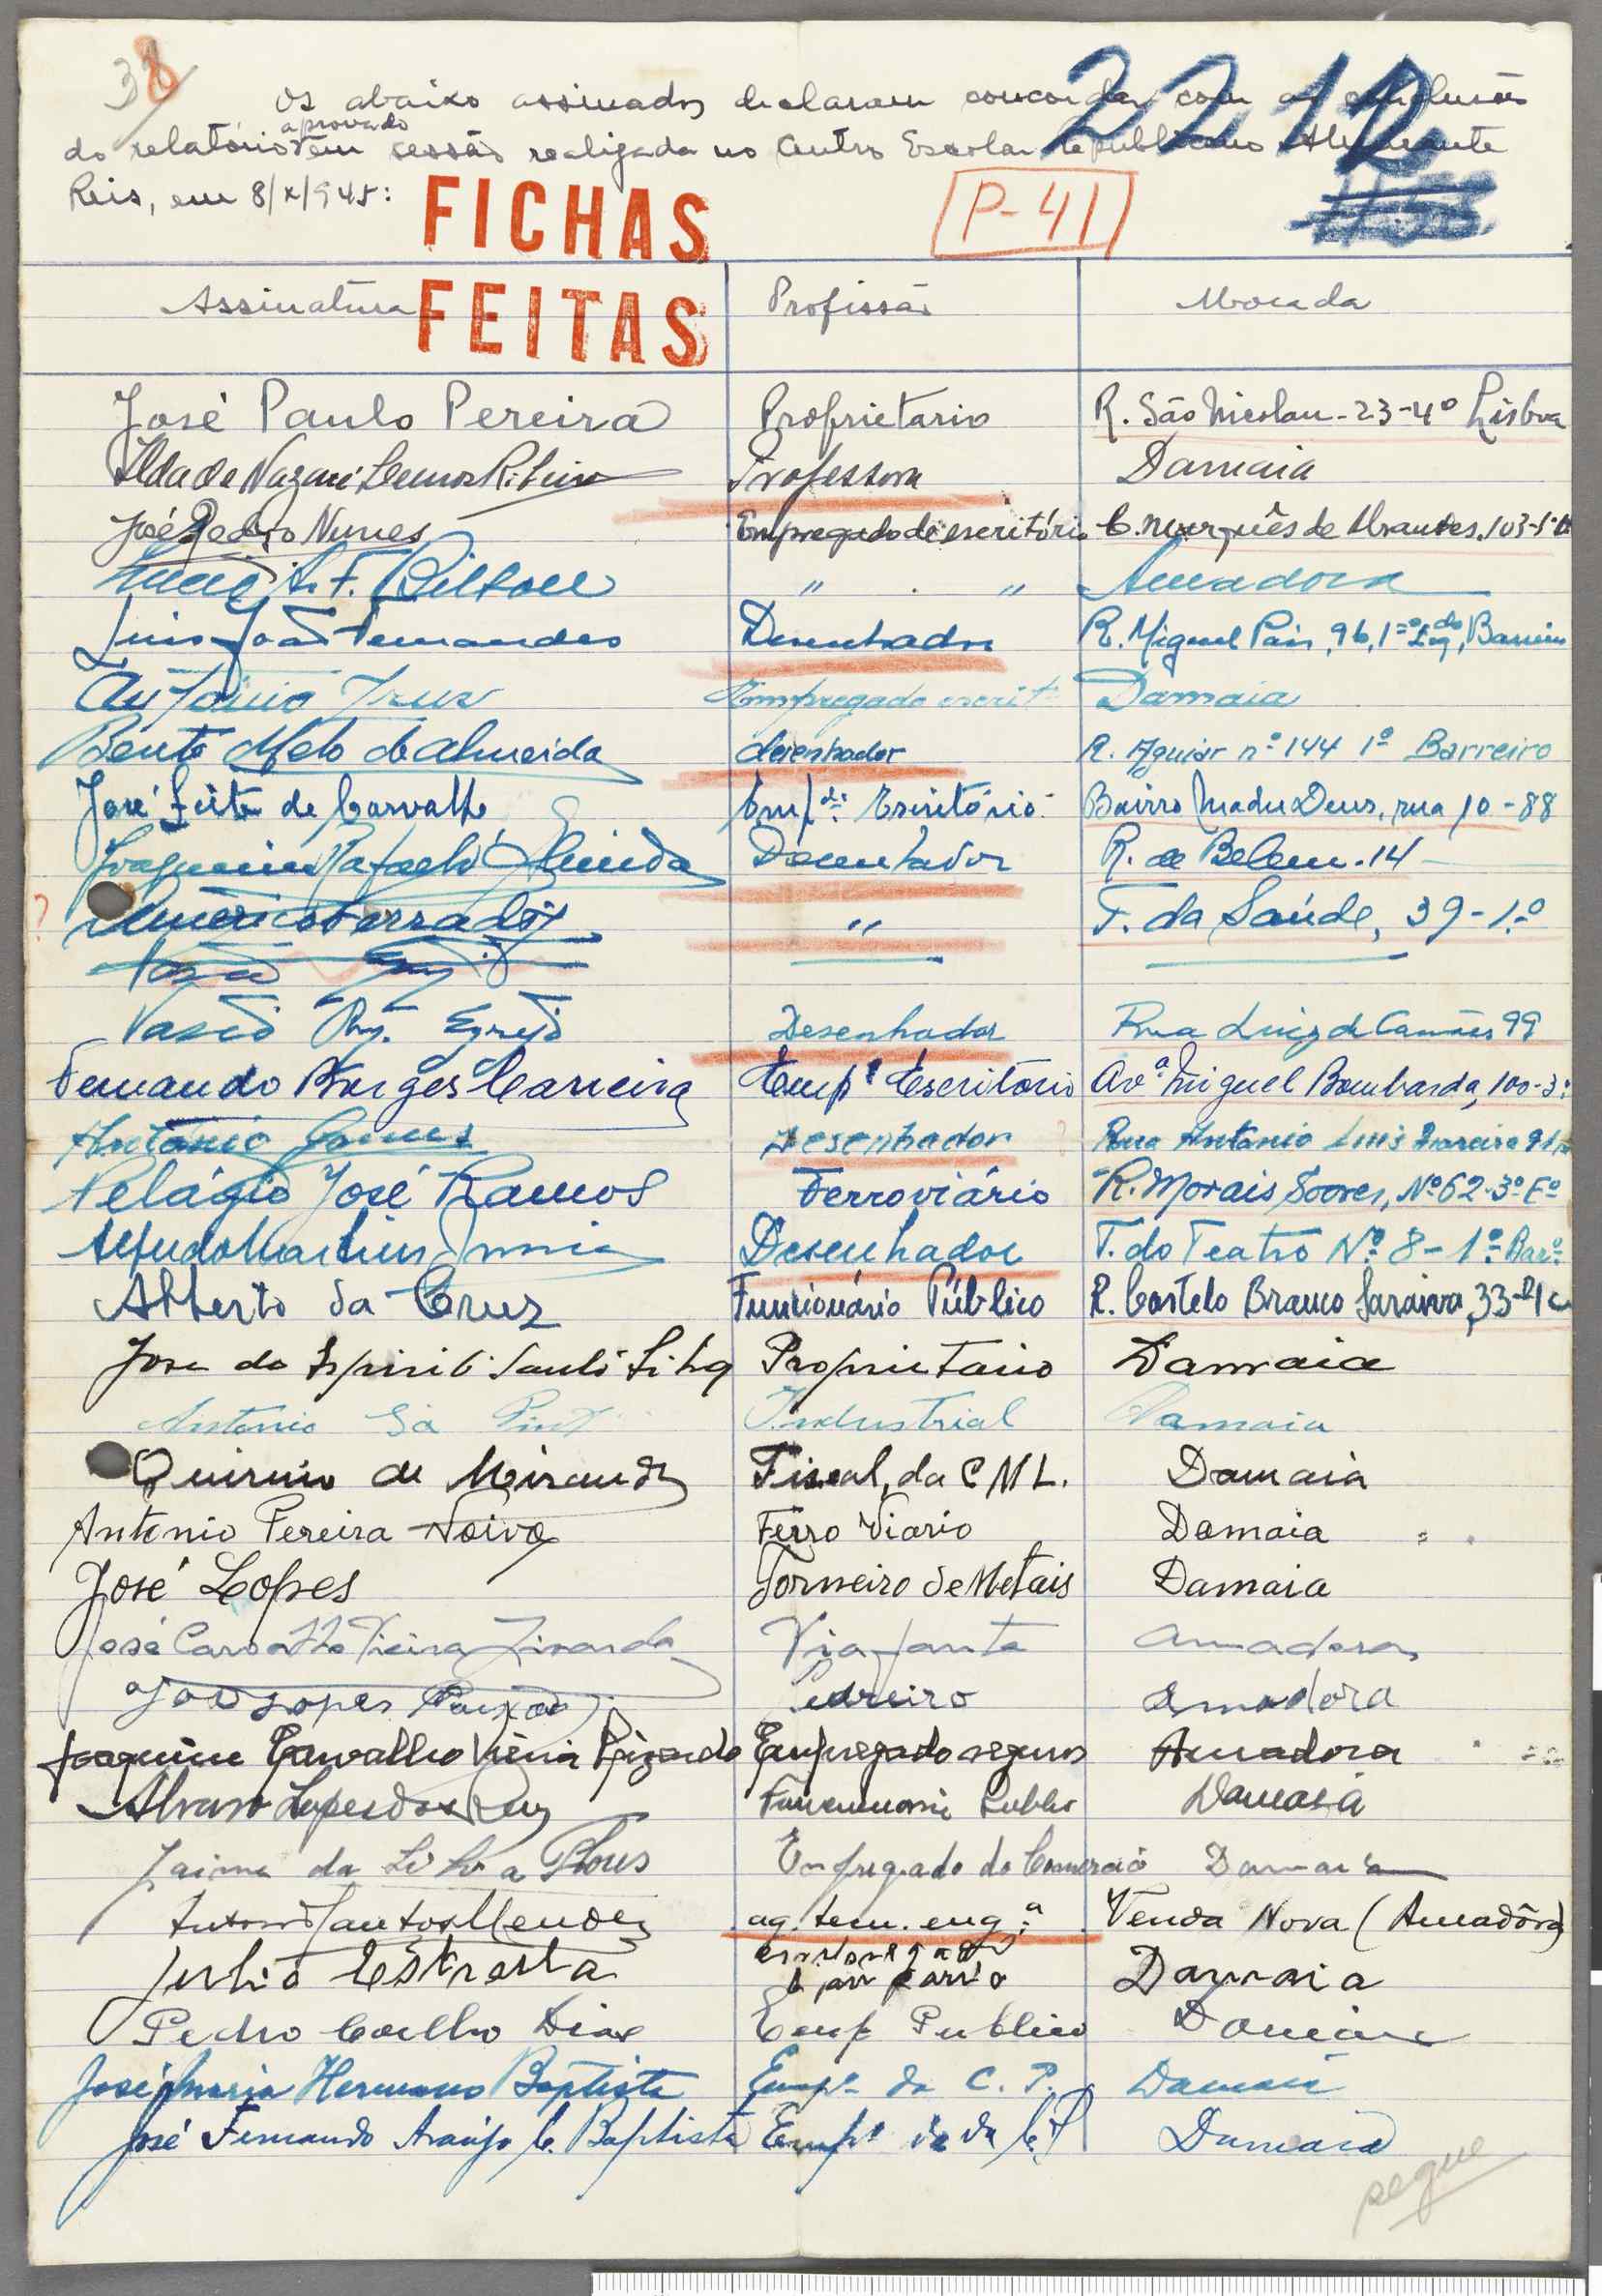 38
Os abaixo assinados declaram concordar com as conclusões
aprovado
do relatório em sessão realizada no Centro Escolar Republicano Almirante
Reis, em 8/X/945:
2212
FICHAS
FEITAS
P-41
Assinatura Profissão Morada
José Paulo Pereira Proprietario R. São Nicolau - 23-4º Lisboa
Ilda de Nazaré Lemos Ribeiro Professora Damaia
José Pedro Nunes Empregado de escritório C. Marquês de Abrantes, 103-1º
A. F. " " Amadora
Luis João Fernandes Desenhador R. Miguel Pais, 96, 1º Esqdo, Barreiro
António Empregado escrit. Damaia
Bento Melo de Almeida desenhador R. Aguiar nº 144 1º Barreiro
José Leite de Carvalho Empdo Escritório Bairro Madre Deus, rua 10 - 88
Joaquim Rafael Almeida Desenhador R. de Belem - 14
Américo Serrador " T. da Saúde, 39-1.º
Vasco Desenhador Rua Luiz de Camões 99
Fernando Borges Carreira Empº Escritório Avª Miguel Bombarda, 100-3º
António Gomes Desenhador Rua Antonio Luis Moreira
Pelágio José Ramos Ferroviário R. Morais Soares, Nº 62-3º Eº
Alfredo Martins Junior Desenhador T. do Teatro Nº 8 - 1º Barº
Alberto da Cruz Funcionário Público R. Castelo Branco Saraiva, 33-
José do Espirito Santo Silva Proprietario Damaia
Antonio Sá Pinto Industrial Damaia
Quirino de Miranda Fiscal, da C M L. Damaia
Antonio Pereira Noivo Ferro Viario Damaia
José Lopes Torneiro de Metais Damaia
José Carvalho Vieira Viajante Amadora
José Lopes Paixão Pedreiro Amadora
Joaquim Carvalho Vieira Empregado seguros Amadora
Alvaro Lopes Funcionario Publico Damaia
Jaime da Silva Empregado do Comercio Damaia
Antonio Santos Mendes ag. tecn. eng.ª Venda Nova (Amadôra)
Julio Damaia
Pedro Coelho Dias Emp Publico Damaia
José Maria Hermano Baptista Empº da C. P. Damaia
José Fernando Araújo C. Baptista Empº da C.P. Damaia
segue